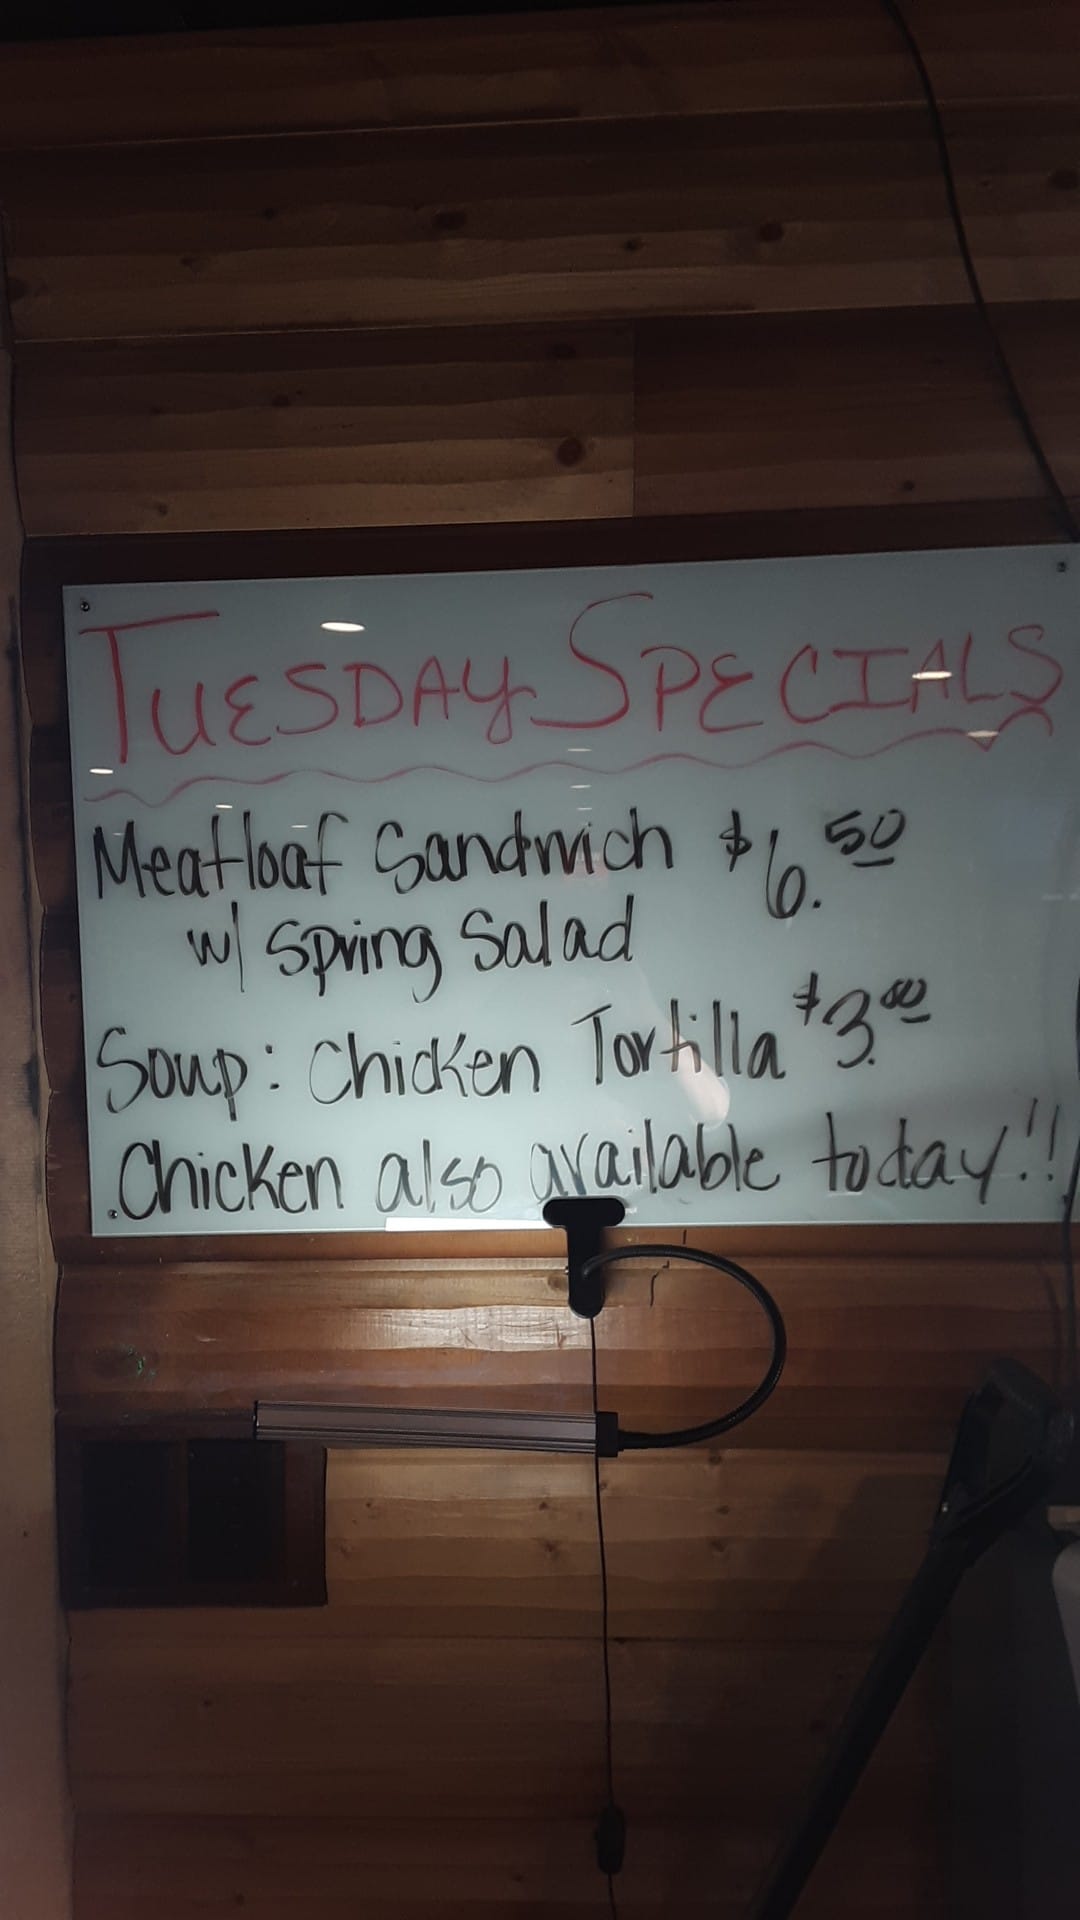 TUESDAY SPECIALS
Meatloaf Sandwich $6.50
w/ Spring Salad
Soup: Chicken Tortilla $3.00
Chicken also available today!!